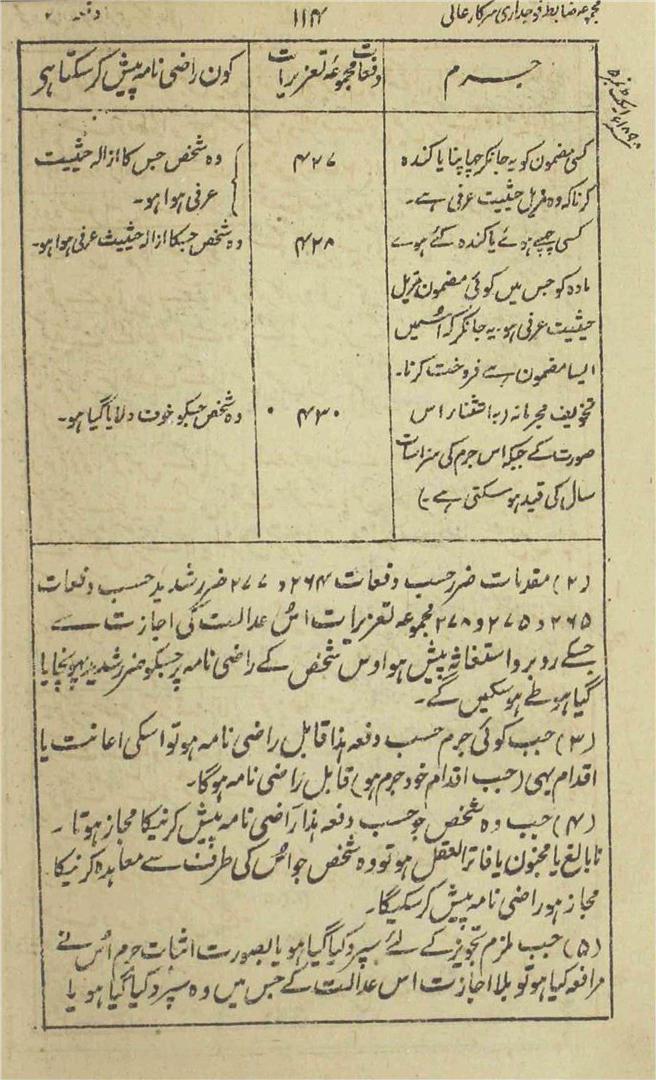 مجموعہ ضابطہ فوجداری سرکار عالی ۱۱۴ دفعہ
جرم دفعات مجموعہ تعزیرات کون راضی نامہ پیش کرسکتا ہی
کسی مضمون کو یہ جانکر چھاپنا یا کندہ ۴۲۷ وہ شخص جس کا ازالہ حیثیت
کرنا کہ وہ مزیل حیثیت عرفی ہے۔ عرفی ہوا ہو۔
کسی چھپے ہوئے یا کندہ کئے ہوے ۴۲۸ وہ شخص جسکا ازالہ حیثیت عرفی ہوا ہو۔
مادہ کو جس میں کوئی مضمون مزیل
حیثیت عرفی ہو۔ یہ جانکر کہ اسمیں
ایسا مضمون ہے فروخت کرنا۔
تخویف مجرمانہ (باستثنار اس ۴۳۰ وہ شخص جسکو خوف دلایا گیا ہو۔
صورت کے جبکہ اس جرم کی سزا سات
سال کی قید ہوسکتی ہے۔)
(۲) مقدمات ضرر حسب دفعات ۲۶۴ و ۲۷۷ ضرر شدید حسب دفعات
۲۶۵ و ۲۷۵ و ۲۷۸ مجموعہ تعزیرات اس عدالت کی اجازت سے
جسکے روبرو استغاثہ پیش ہو اوس شخص کے راضی نامہ پر جسکو ضرر شدید پہونچایا
گیا ہو طے ہوسکیں گے۔
(۳) جب کوئی جرم حسب دفعہ ہذا قابل راضی نامہ ہو تو اسکی اعانت یا
اقدام بہی (جب اقدام خود جرم ہو) قابل راضی نامہ ہوگا۔
(۴) جب وہ شخص جو حسب دفعہ ہذا راضی نامہ پیش کرنیکا مجاز ہوتا۔
نابالغ یا مجنون یا فاتر العقل ہو تو وہ شخص جو اس کی طرف سے معاہدہ کرنیکا
مجاز ہو راضی نامہ پیش کرسکیگا۔
(۵) جب ملزم تجویز کے لئے سپرد کیا گیا ہو یا بصورت اثبات جرم اس نے
مرافعہ کیا ہو تو بلا اجازت اس عدالت کے جس میں وہ سپرد کیا گیا ہو یا